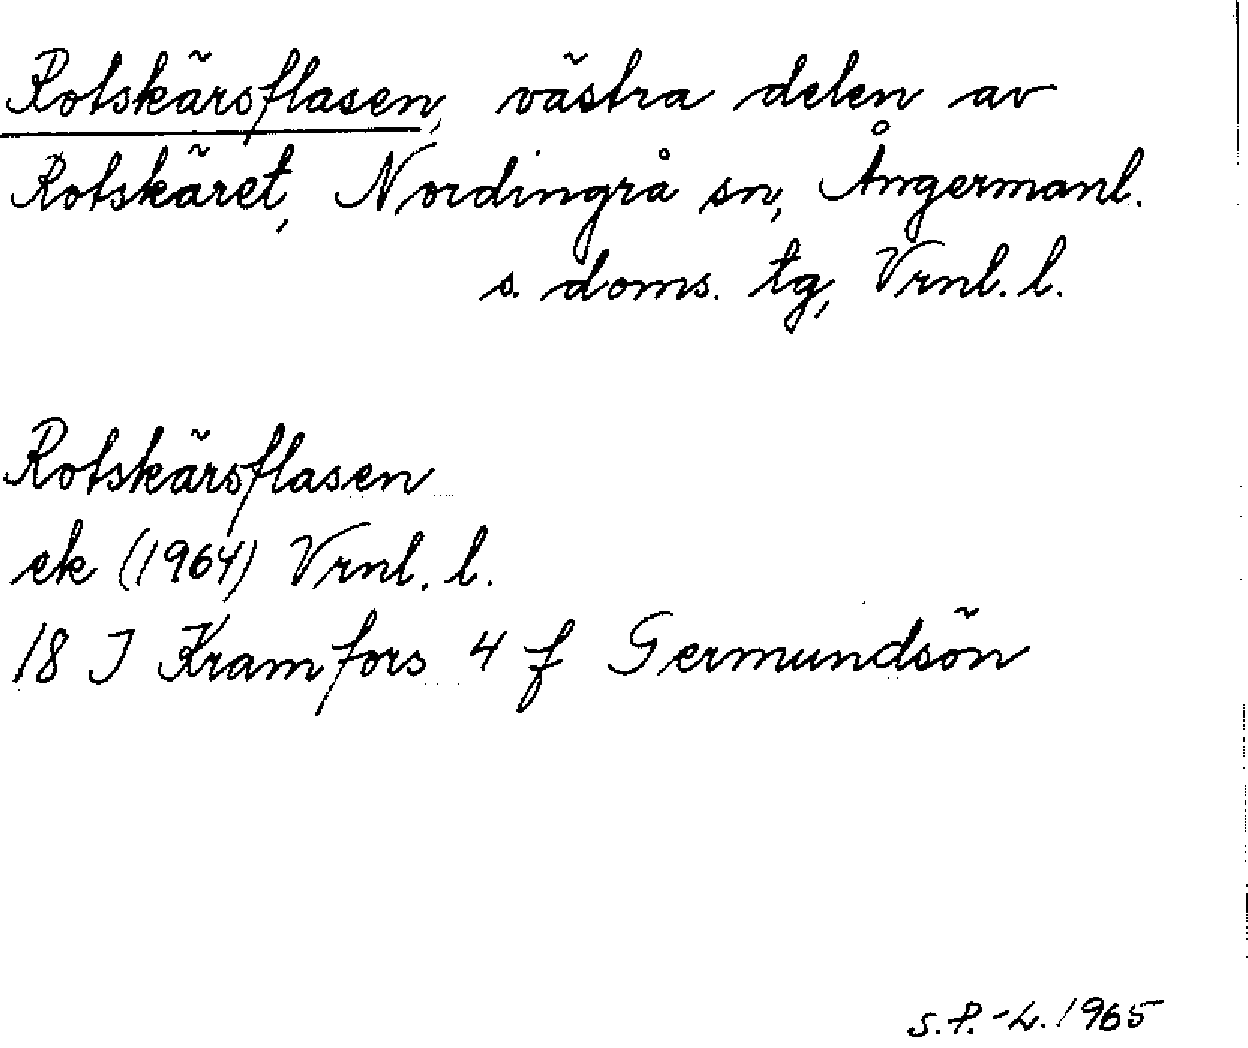 Rotskärsflasen, västra delen av
Rotskäret, Nordingrå sn, Ångermanl.
s. doms. tg, Vrnl. l.
Rotskärsflasen
ek (1964) Vrnl. l.
18 J Kramfors 4 f Germundsön
S.P.-L. 1965